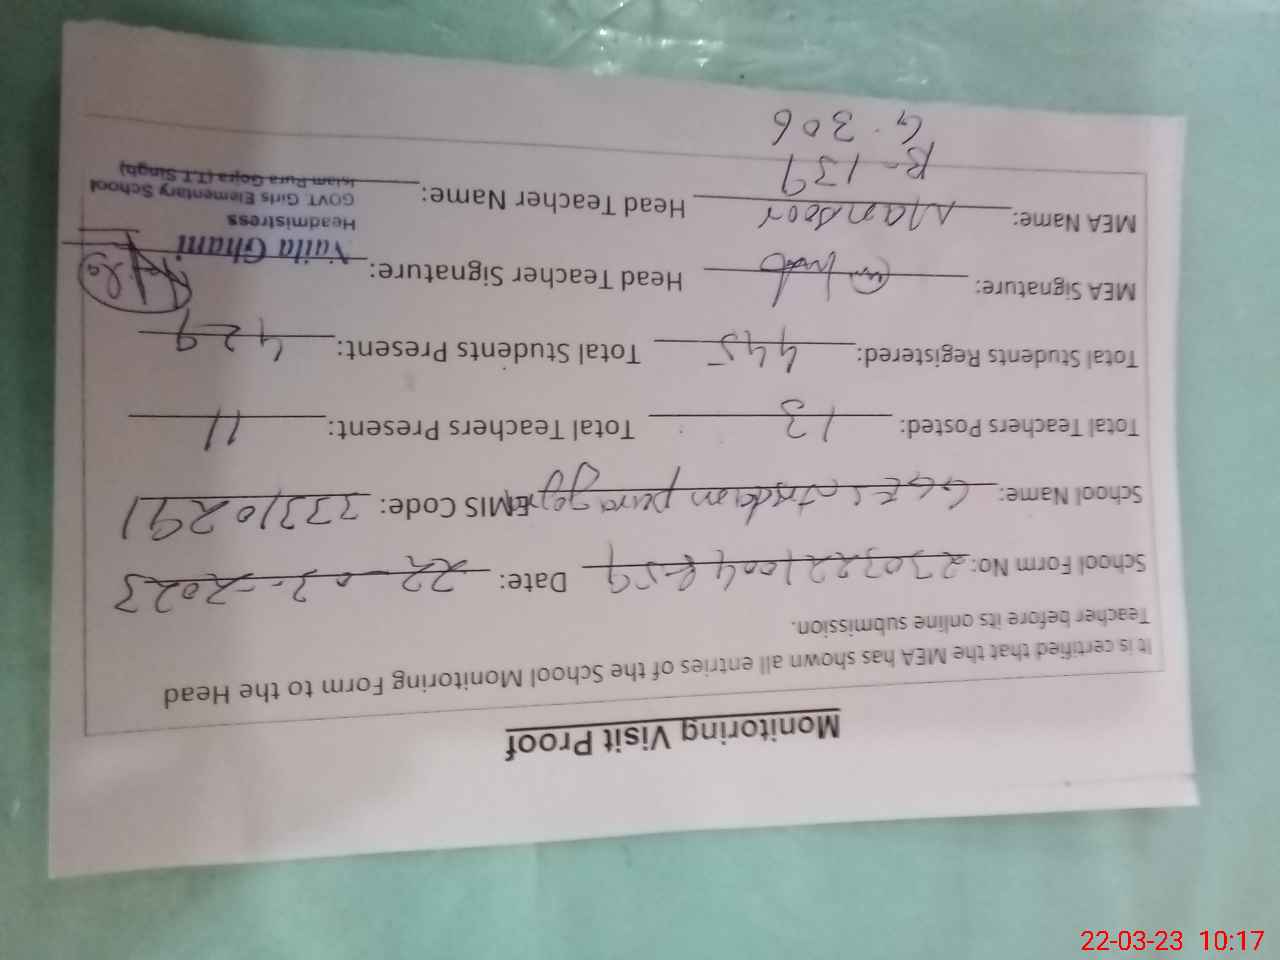 Monitoring Visit Proof
It is certified that the MEA has shown all entries of the School Monitoring Form to the Head
Teacher before its online submission.
School Form No: Date: 22-03-2023
School Name: GGES pura EMIS Code: 33310291
Total Teachers Posted: 13 Total Teachers Present: 11
Total Students Registered: 445 Total Students Present: 429
MEA Signature: Head Teacher Signature:
Naila Ghani
Headmistress
MEA Name: Mansoor Head Teacher Name:
GOVT. Girls Elementary School
Islam Pura Gojra (T.T Singh)
B-139
G. 306
22-03-23 10:17